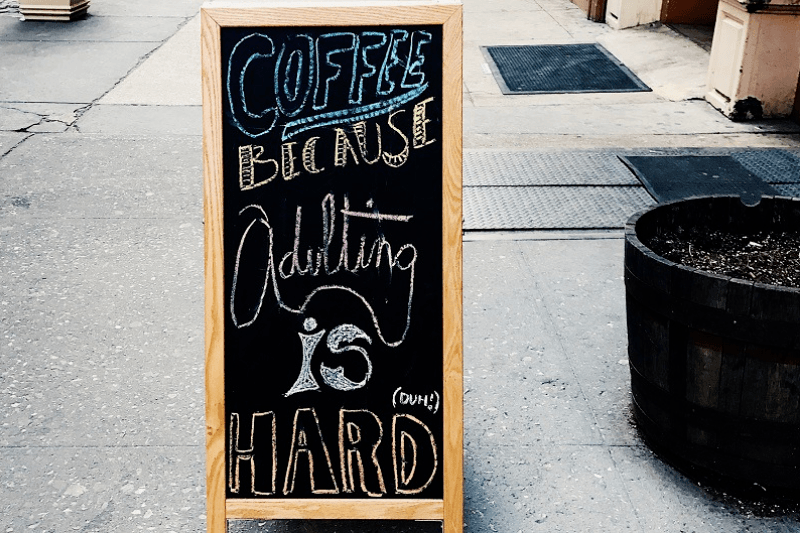 COFFEE
BECAUSE
Adulting
is
(DUH!)
HARD